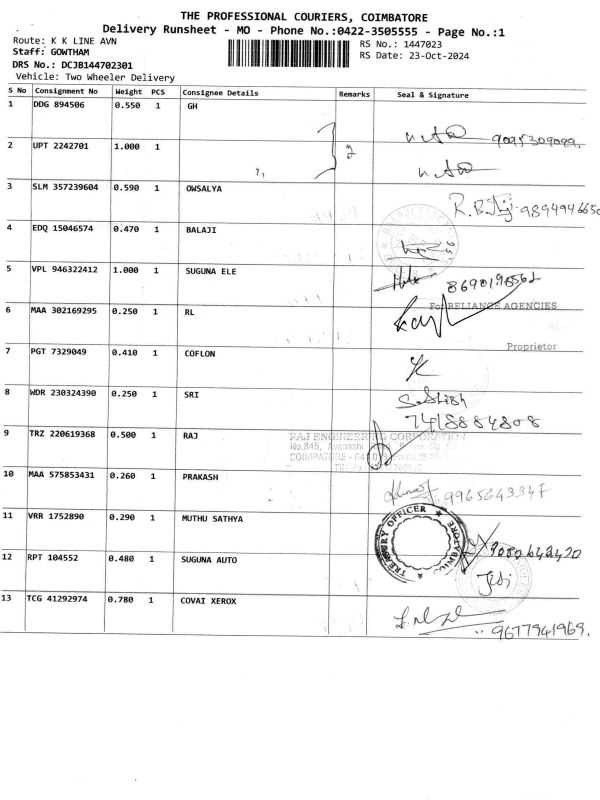 THE PROFESSIONAL COURIERS, COIMBATORE
Delivery Runsheet - MO - Phone No.:0422-3505555 - Page No.:1
Route: K K LINE AVN
RS No.: 1447023
Staff: GOWTHAM
RS Date: 23-Oct-2024
DRS No.: DCJB144702301
Vehicle: Two Wheeler Delivery
S No Consignment No Weight PCS Consignee Details Remarks Seal & Signature
1 DDG 894506 0.550 1 GH
9095309099.
2 UPT 2242701 1.000 1 2
3 SLM 357239604 0.590 1 OWSALYA
9894946650
4 EDQ 15046574 0.470 1 BALAJI
5 VPL 946322412 1.000 1 SUGUNA ELE
For RELIANCE AGENCIES
6 MAA 302169295 0.250 1 RL
Proprietor
7 PGT 7329049 0.410 1 COFLON
8 WDR 230324390 0.250 1 SRI
Sathish
7418884808
9 TRZ 220619368 0.500 1 RAJ
RAJ ENGINEERING CORPORATION
10 MAA 575853431 0.260 1 PRAKASH
11 VRR 1752890 0.290 1 MUTHU SATHYA
TREASURY OFFICER
COIMBATORE
12 RPT 104552 0.480 1 SUGUNA AUTO
13 TCG 41292974 0.780 1 COVAI XEROX
9677941969.